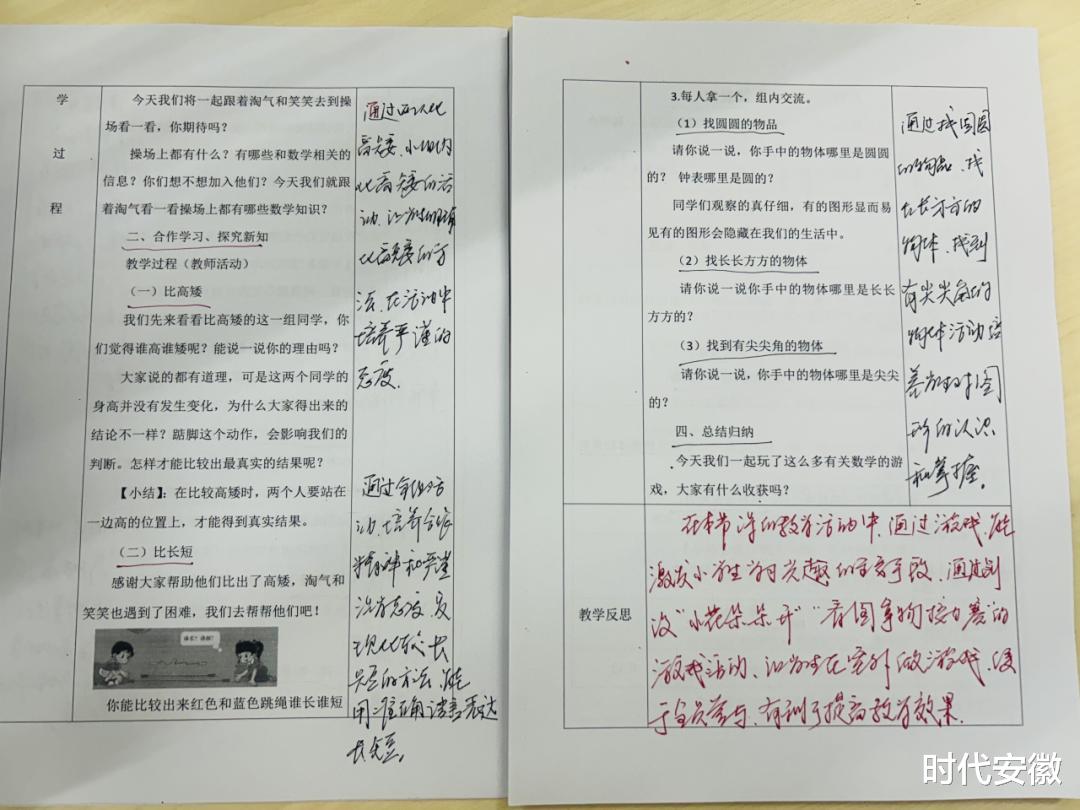 学
过
程
今天我们将一起跟着淘气和笑笑去到操
场看一看，你期待吗？
操场上都有什么？有哪些和数学相关的
信息？你们想不想加入他们？今天我们就跟
着淘气看一看操场上都有哪些数学知识？
二、合作学习、探究新知
教学过程（教师活动）
（一）比高矮
我们先来看看比高矮的这一组同学，你
们觉得谁高谁矮呢？能说一说你的理由吗？
大家说的都有道理，可是这两个同学的
身高并没有发生变化，为什么大家得出来的
结论不一样？踮脚这个动作，会影响我们的
判断。怎样才能比较出最真实的结果呢？
【小结】：在比较高矮时，两个人要站在
一边高的位置上，才能得到真实结果。
（二）比长短
感谢大家帮助他们比出了高矮，淘气和
笑笑也遇到了困难，我们去帮帮他们吧！
你能比较出来红色和蓝色跳绳谁长谁短
高矮、小组内
比高矮的活
比高矮的方
法，在活动中
培养严谨的
态度。
精神和严谨
长短。
3.每人拿一个，组内交流。
（1）找圆圆的物品
请你说一说，你手中的物体哪里是圆圆
的？ 钟表哪里是圆的？
同学们观察的真仔细，有的图形显而易
见有的图形会隐藏在我们的生活中。
（2）找长长方方的物体
请你说一说你手中的物体哪里是长长
方方的？
（3）找到有尖尖角的物体
请你说一说，你手中的物体哪里是尖尖
的？
四、总结归纳
今天我们一起玩了这么多有关数学的游
戏，大家有什么收获吗？
通过找圆圆
的物品、找
长长方方的
物体、找到
有尖尖角的
物体活动培
养学生对图
形的认识
和掌握。
教学反思
在本节课的教学活动中，通过游戏，能
激发小学生学习兴趣的重要手段，通过创
设“小花朵朵开”“看图拿物接力赛”的
游戏活动、让学生在室外做游戏，便
于全员参与、有利于提高教学效果。
时代安徽